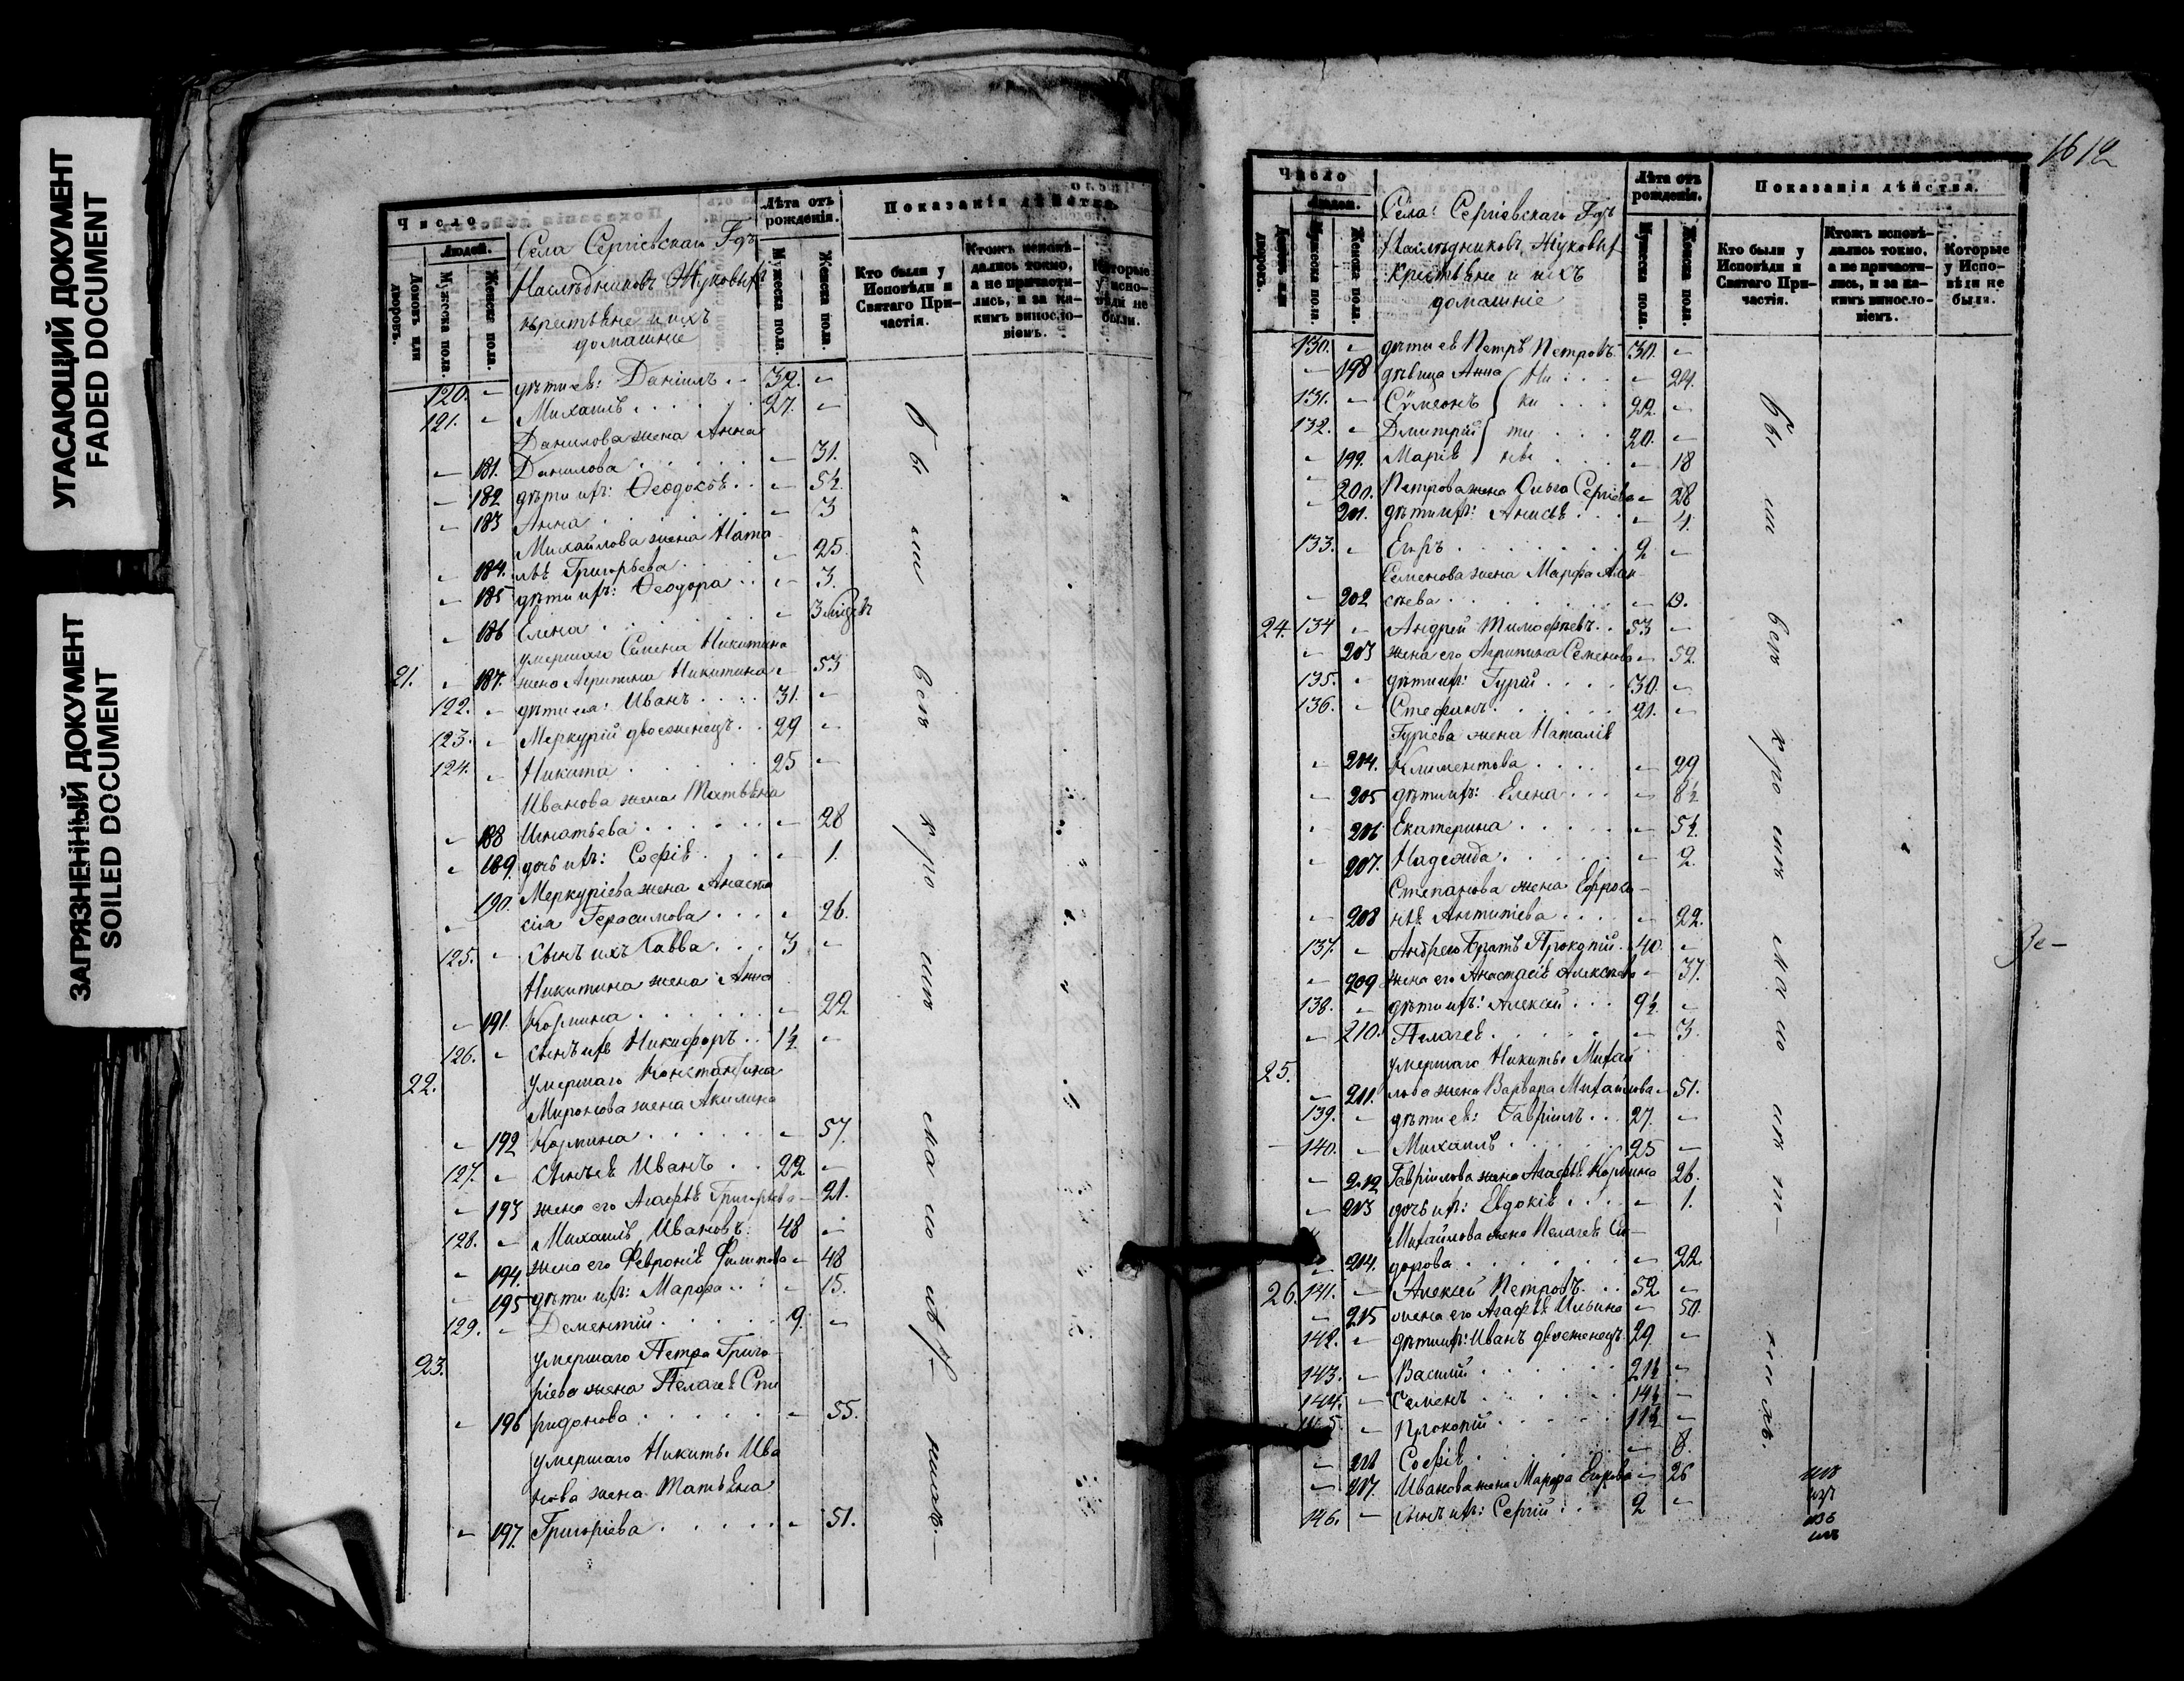 УГАСАЮЩИЙ ДОКУМЕНТ
FADED DOCUMENT
ЗАГРЯЗНЕННЫЙ ДОКУМЕНТ
SOILED DOCUMENT
Число
Людей.
Домовъ или дворовъ.
Мужеска пола.
Женска пола.
Села Сергіевскаго Гдъ
Наслѣдниковъ Жуковыхъ
крестьяне и ихъ
домашніе
Лѣта отъ рожденія.
Мужеска пола.
Женска пола.
Показанія дѣйства.
Кто были у Исповѣди и Святаго Причастія.
Ктожъ исповѣдались токмо, а не причастились, и за какимъ винословіемъ.
Которые у Исповѣди не были.
120. - дѣти ев: Даніилъ . . 32. -
121. - Михаилъ . . . . 27. -
Данилова жена Анна
- 181. Данилова . . . . - 31.
- 182 дѣти ихъ: Ѳеодосья . . - 5½
- 183 Анна . . . . - 3
Михайлова жена Ната
- 184. лья Григорьева . . - 25.
- 185 дѣти ихъ: Ѳеодора . . - 3.
- 186 Елена . . . . - 3 мцѣвъ
умершаго Семена Никитина
21. - 187. жена Агрипина Никитина - 53
122. - дѣти ея: Иванъ . . . 31. -
123. - Меркурій двоеженецъ . . 29 -
124. - Никита . . . . 25 -
Иванова жена Татьяна
- 188 Игнатьева . . . . - 28
- 189. дочь ихъ: Софія . . - 1.
190. Меркуріева жена Анаста
- сія Герасимова . . . - 26.
125. - Сынъ ихъ Савва . . . 3 -
Никитина жена Анна
- 191. Кормина . . . . - 22
126. - сынъ ихъ Никифоръ . . 1½ -
22. умершаго Константина
Миронова жена Акилина
- 192 Кормина . . . . - 57.
127. - Сынъ ея Иванъ . . 22 -
- 193 жена его Агафья Григорьева - 21.
128. - Михаилъ Ивановъ 48 -
- 194. жена его Февронія Филипова - 48
- 195 дѣти ихъ: Марфа . . - 15.
129. - Дементій . . . . 9. -
23. умершаго Петра Григо
ріева жена Пелагея Спи
- 196 ридонова . . . . - 55.
умершаго Никиты Ива
нова жена Татьяна
- 197. Григоріева . . . . - 51.
1612
Число
Людей.
Домовъ или дворовъ.
Мужеска пола.
Женска пола.
Села Сергіевскаго Гдъ
Наслѣдниковъ Жуковых
крестьяне и ихъ
домашніе
Лѣта отъ рожденія.
Мужеска пола.
Женска пола.
Показанія дѣйства.
Кто были у Исповѣди и Святаго Причастія.
Ктожъ исповѣдались токмо, а не причастились, и за какимъ винословіемъ.
Которые у Исповѣди не были.
130. - дѣти ев Петръ Петровъ 30. -
- 198 дѣвица Анна Ни . . . - 24.
131. - Сѵмеонъ ки . . . 22. -
132. - Дмитрій ти . . . 20. -
- 199. Марія ны . . . - 18
- 200. Петрова жена Ольга Сергіева - 28
- 201. дѣти ихъ: Анисья . . - 4.
133. - Егоръ . . . . 2 -
Семенова жена Марфа Алек-
- 202 сѣева . . . . - 19.
24. 134 - Андрей Тимофѣевъ . . 53 -
- 203 жена его Агрипина Семенова - 52.
135. - дѣти ихъ: Гурій . . . 30. -
136. - Стефанъ . . . . 21. -
Гуріева жена Наталія
- 204. Климентова . . . - 29
- 205 дѣти ихъ: Елена . . . - 8½
- 206 Екатерина . . . . - 5½
- 207. Надежда . . . . - 2.
Степанова жена Ефроси-
- 208 нья Антипіева . . . - 22.
137. - Андрея братъ Прокопій . 40. -
- 209 жена его Анастасія Алексѣева - 37.
138. - дѣти ихъ: Алексѣй . . . 9½ -
- 210. Пелагея . . . . - 3.
25. умершаго Никиты Михай
- 211. лова жена Варвара Михайлова - 51.
139. - дѣти ев: Гавріилъ . . . 27. -
- 140. - Михаилъ . . . . 25 -
- 212 Гавріилова жена Агафья Кормина 26.
- 213 дочь их: Евдокія . . . - 1.
Михайлова жена Пелагея Си-
- 214. дорова . . . . - 22.
26. 141. - Алексѣй Петровъ . . 52 -
- 215 жена его Агафья Ильина - 50.
142. - дѣти ихъ: Иванъ двоеженецъ. 29 -
143. - Василій . . . . 21½ -
144. - Семенъ . . . . 14½ -
145. - Прокопій . . . . 11½ -
- 216 Софія . . . . - 8.
- 217. Иванова жена Марфа Егорова - 26
146. - Сынъ ихъ: Сергій . . 2 -